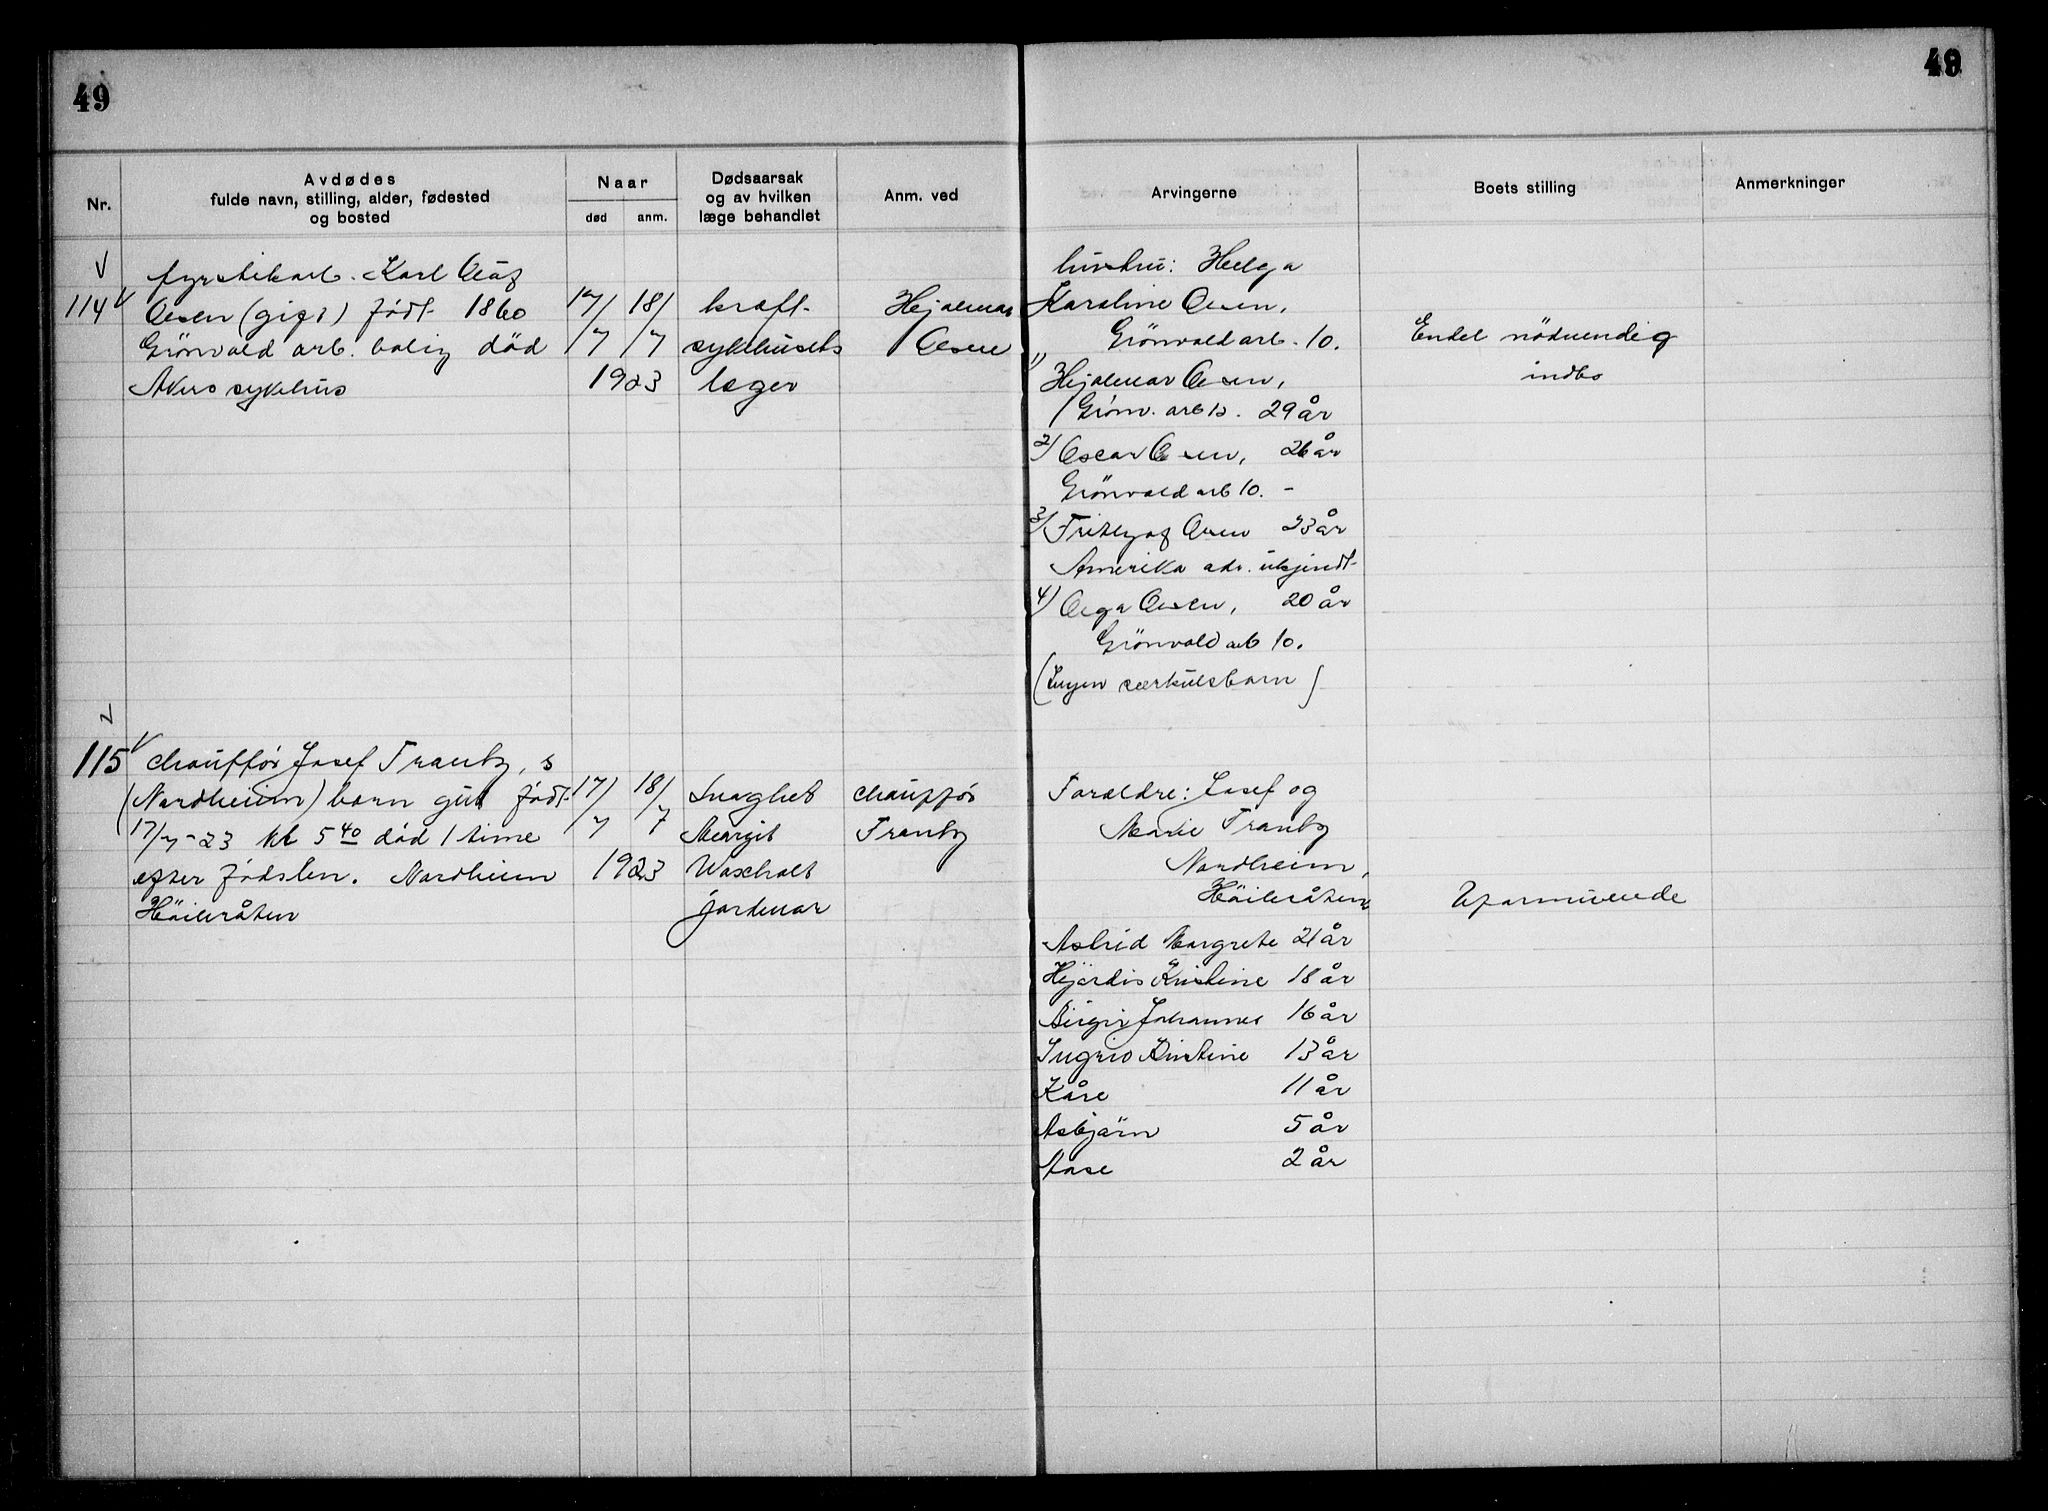 49
49
Nr.
Avdødes
fulde navn, stilling, alder, fødested
og bosted
Naar
død
anm.
Dødsaarsak
og av hvilken
læge behandlet
Anm. ved
Arvingerne
Boets stilling
Anmerkninger
114
fyrstikarb. Karl Olaf
Olsen (gift) født 1860
Grönvold arb. bolig död
Akers sykehus
17/7 18/7
1923
kræft
sykehusets
læger
Hjalmar
Olsen
hustru: Helga
Karoline Olsen,
Grönvold arb. 10.
1) Hjalmar Olsen,
Grönv. arb 10. 29 år
2) Oscar Olsen, 26 år
Grönvold arb 10. -
3) Frithjof Olsen 23 år
Amerika adr. ukjendt
4) Olga Olsen, 20 år
Grönvold arb 10.
(Ingen særkulsbarn)
Endel nödvendig
indbo
115
chauffør Josef Tranby, s
(Nordheim) barn gut født
17/7-23 kl 5 40 död 1 time
efter fødslen. Nordheim
Höibråten
17/7 18/7
1923
Svaghet
Margit
jordmor
chauffør
Tranby
Forældre: Josef og
Marie Tranby
Nordheim,
Höibråten
Astrid Margrete 21 år
Hjördis Kristine 18 år
Birger Johannes 16 år
Ingrid Kristine 13 år
Kåre 11 år
Asbjörn 5 år
Aase 2 år
Uformuende